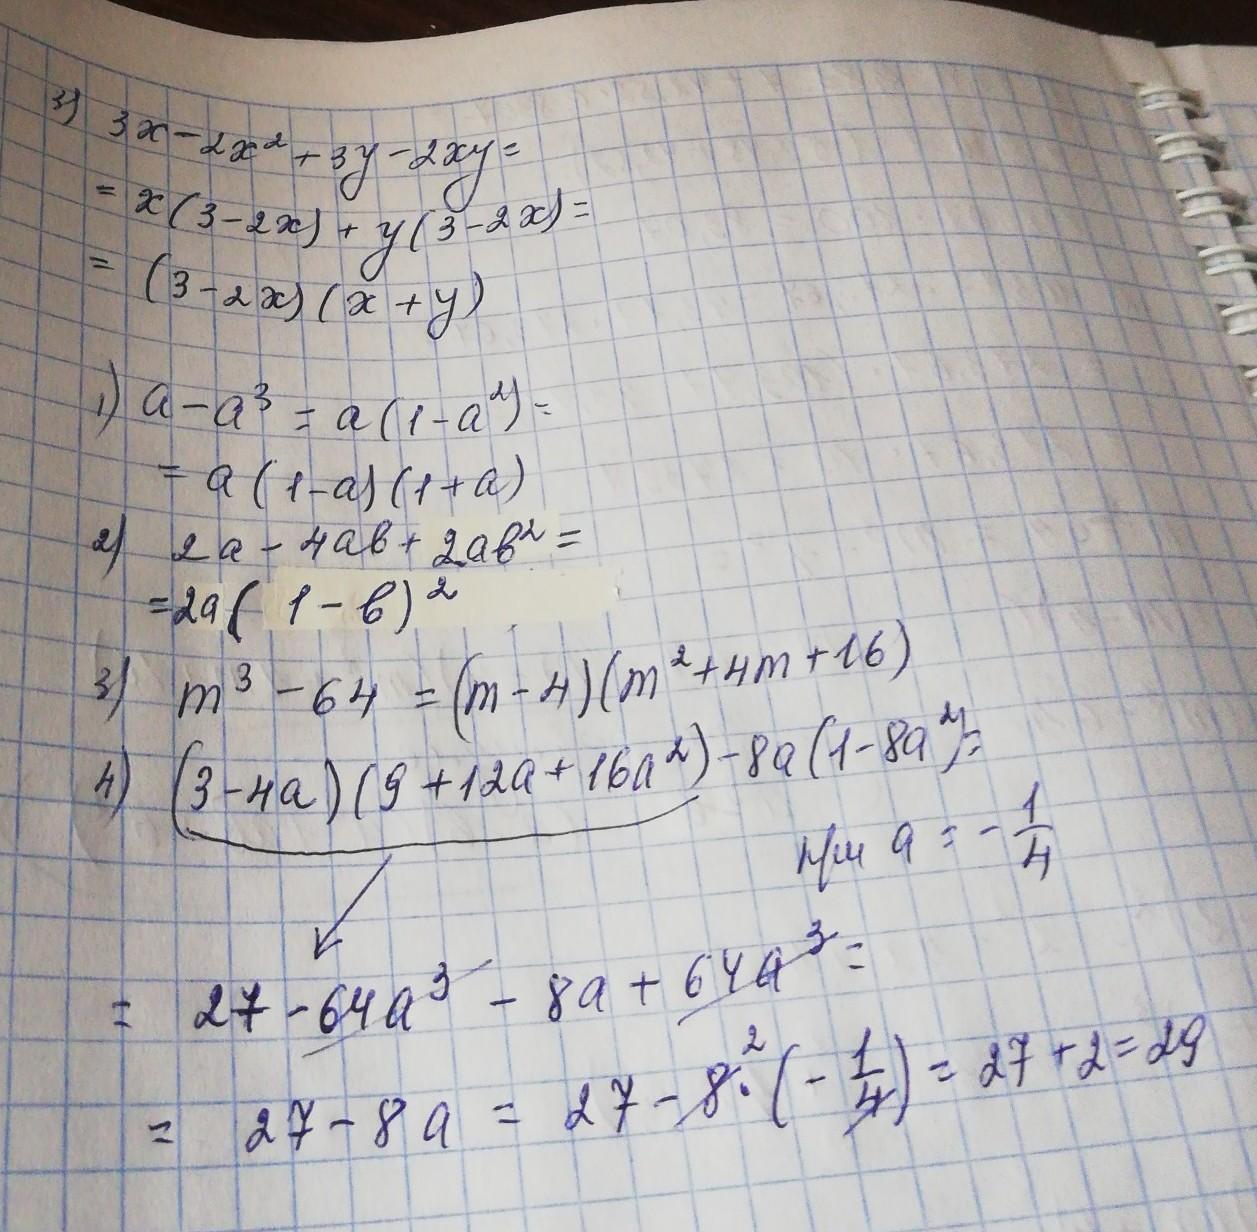 3) 3x - 2x² + 3y - 2xy =
= x(3 - 2x) + y(3 - 2x) =
= (3 - 2x)(x + y)
1) a - a³ = a(1 - a²) =
= a(1 - a)(1 + a)
2) 2a - 4ab + 2ab² =
= 2a(1 - b)²
3) m³ - 64 = (m - 4)(m² + 4m + 16)
4) (3 - 4a)(9 + 12a + 16a²) - 8a(1 - 8a²) =
при a = - 1/4
= 27 - 64a³ - 8a + 64a³ =
= 27 - 8a = 27 - 8² · (- 1/4) = 27 + 2 = 29